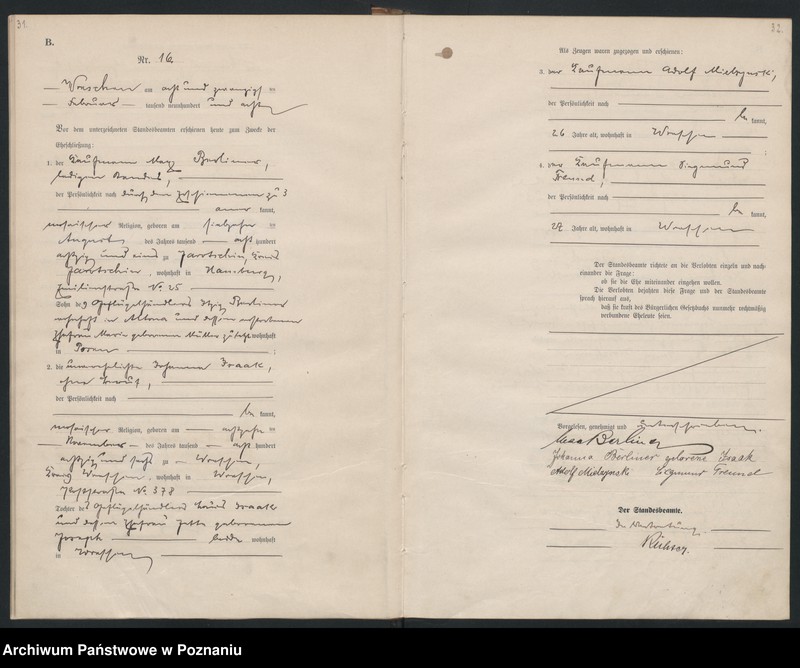 31.
B.
Nr. 16.
Wreschen am acht und zwanzigsten
Februar tausend neunhundert und acht
Vor dem unterzeichneten Standesbeamten erschienen heute zum Zwecke der
Eheschließung:
1. der Kaufmann Max Berliner,
ledigen Standes,
der Persönlichkeit nach durch den zu 3
kannt,
mosaischer Religion, geboren am siebzehnten
August des Jahres tausend acht hundert
achtzig und eins zu Jarotschin, Kreis
Jarotschin, wohnhaft in Hamburg,
No. 25
Sohn des Geflügelhändlers Berliner
wohnhaft in Altona und dessen verstorbenen
Ehefrau Marie geborenen Müller zuletzt wohnhaft
in Posen
2. die unverehelichte Johanna Isaak,
ohne Beruf,
der Persönlichkeit nach
be kannt,
mosaischer Religion, geboren am achtzehnten
November des Jahres tausend acht hundert
achtzig und sechs zu Wreschen,
Kreis Wreschen, wohnhaft in Wreschen,
No. 378
Tochter des Geflügelhändlers Louis Isaak
und dessen Ehefrau Jette geborenen
Joseph beide wohnhaft
in Wreschen
32.
Als Zeugen waren zugezogen und erschienen:
3. der Kaufmann Adolf Mielzynski,
der Persönlichkeit nach
be kannt,
26 Jahre alt, wohnhaft in Wreschen
4. der Kaufmann Siegmund
Freund,
der Persönlichkeit nach
be kannt,
27 Jahre alt, wohnhaft in Wreschen
Der Standesbeamte richtete an die Verlobten einzeln und nach-
einander die Frage:
ob sie die Ehe miteinander eingehen wollen.
Die Verlobten bejahten diese Frage und der Standesbeamte
sprach hierauf aus,
daß sie kraft des Bürgerlichen Gesetzbuchs nunmehr rechtmäßig
verbundene Eheleute seien.
Vorgelesen, genehmigt und unterschrieben.
Max Berliner
Johanna Berliner geborene Isaak
Adolf Mielzynski Siegmund Freund
Der Standesbeamte.
In Vertretung.
Archiwum Państwowe w Poznaniu